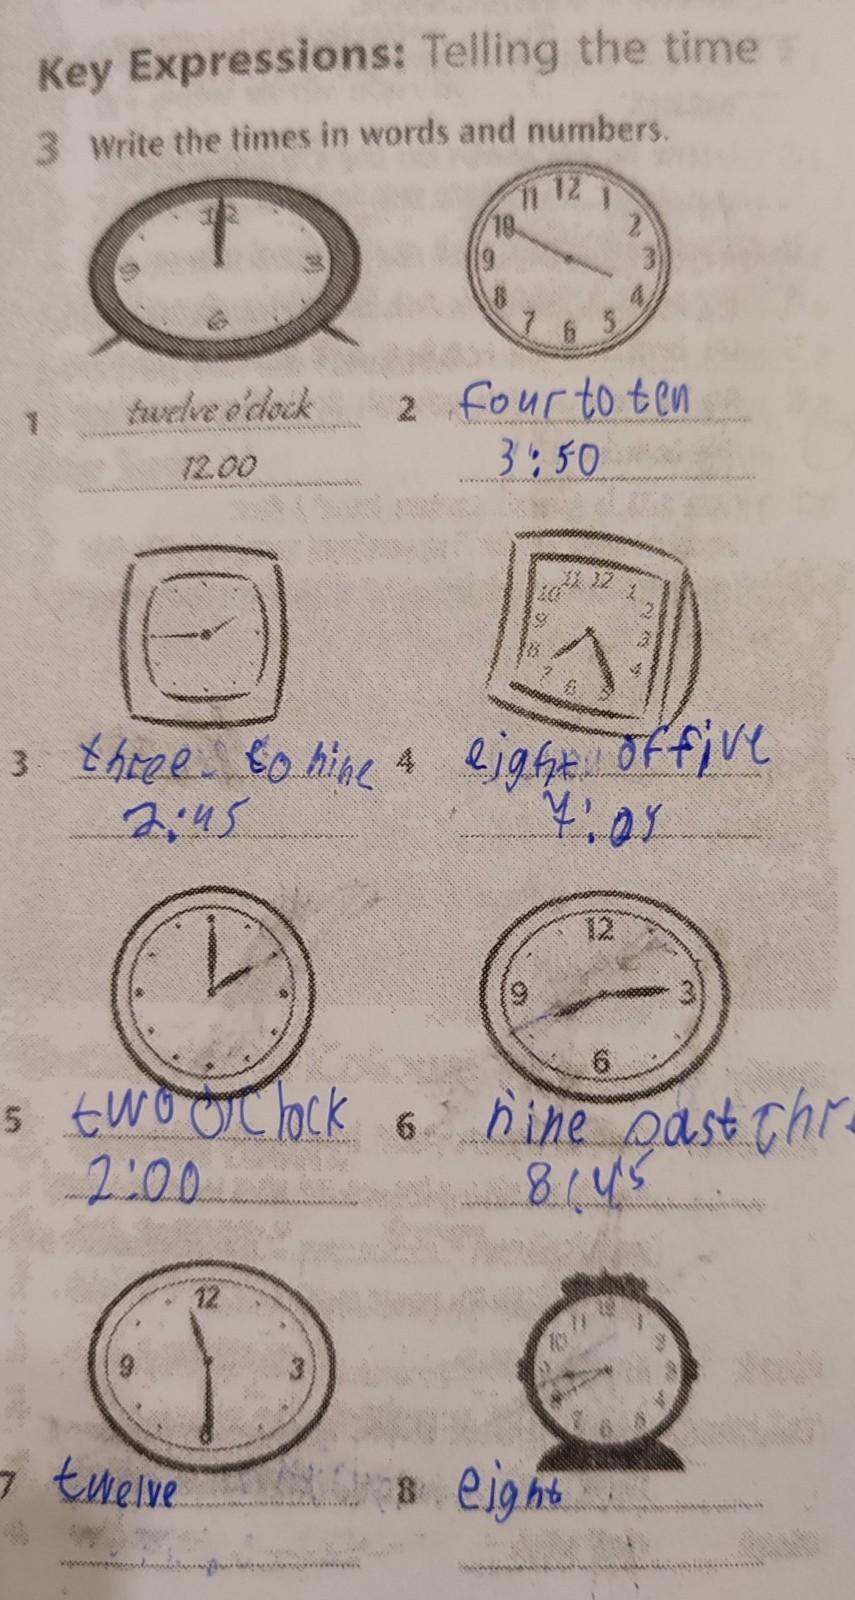 Key Expressions: Telling the time
3 Write the times in words and numbers.
12
3
6
9
12
1
2
3
4
5
6
7
8
9
10
11
1 twelve o'clock
12.00
2 four to ten
3:50
11 12 1
10
2
9
3
8
4
7
6
5
3 three to nine
2:45
4 eight of five
7:05
12
9
3
6
5 two o'clock
2:00
6 nine past thr
8:45
12
9
3
6
12
11
1
10
7
6
7 twelve
8 eight